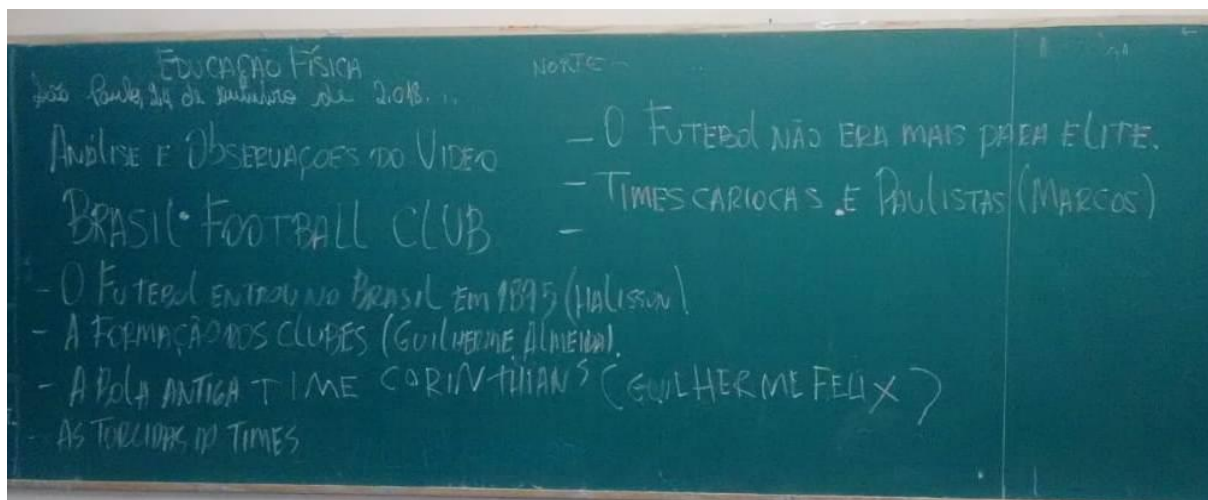 EDUCAÇÃO FÍSICA
São Paulo, 24 de outubro de 2.018...
ANÁLISE E OBSERVAÇÕES DO VIDEO
BRASIL FOOTBALL CLUB
- O FUTEBOL ENTROU NO BRASIL EM 1895 (HALISSON)
- A FORMAÇÃO DOS CLUBES (GUILHERME ALMEIDA).
- A BOLA ANTIGA TIME CORINTHIANS (GUILHERME FELIX)
- AS TORCIDAS DO TIMES
NORTE -
- O FUTEBOL NÃO ERA MAIS PARA ELITE.
- TIMES CARIOCAS E PAULISTAS (MARCOS)
-